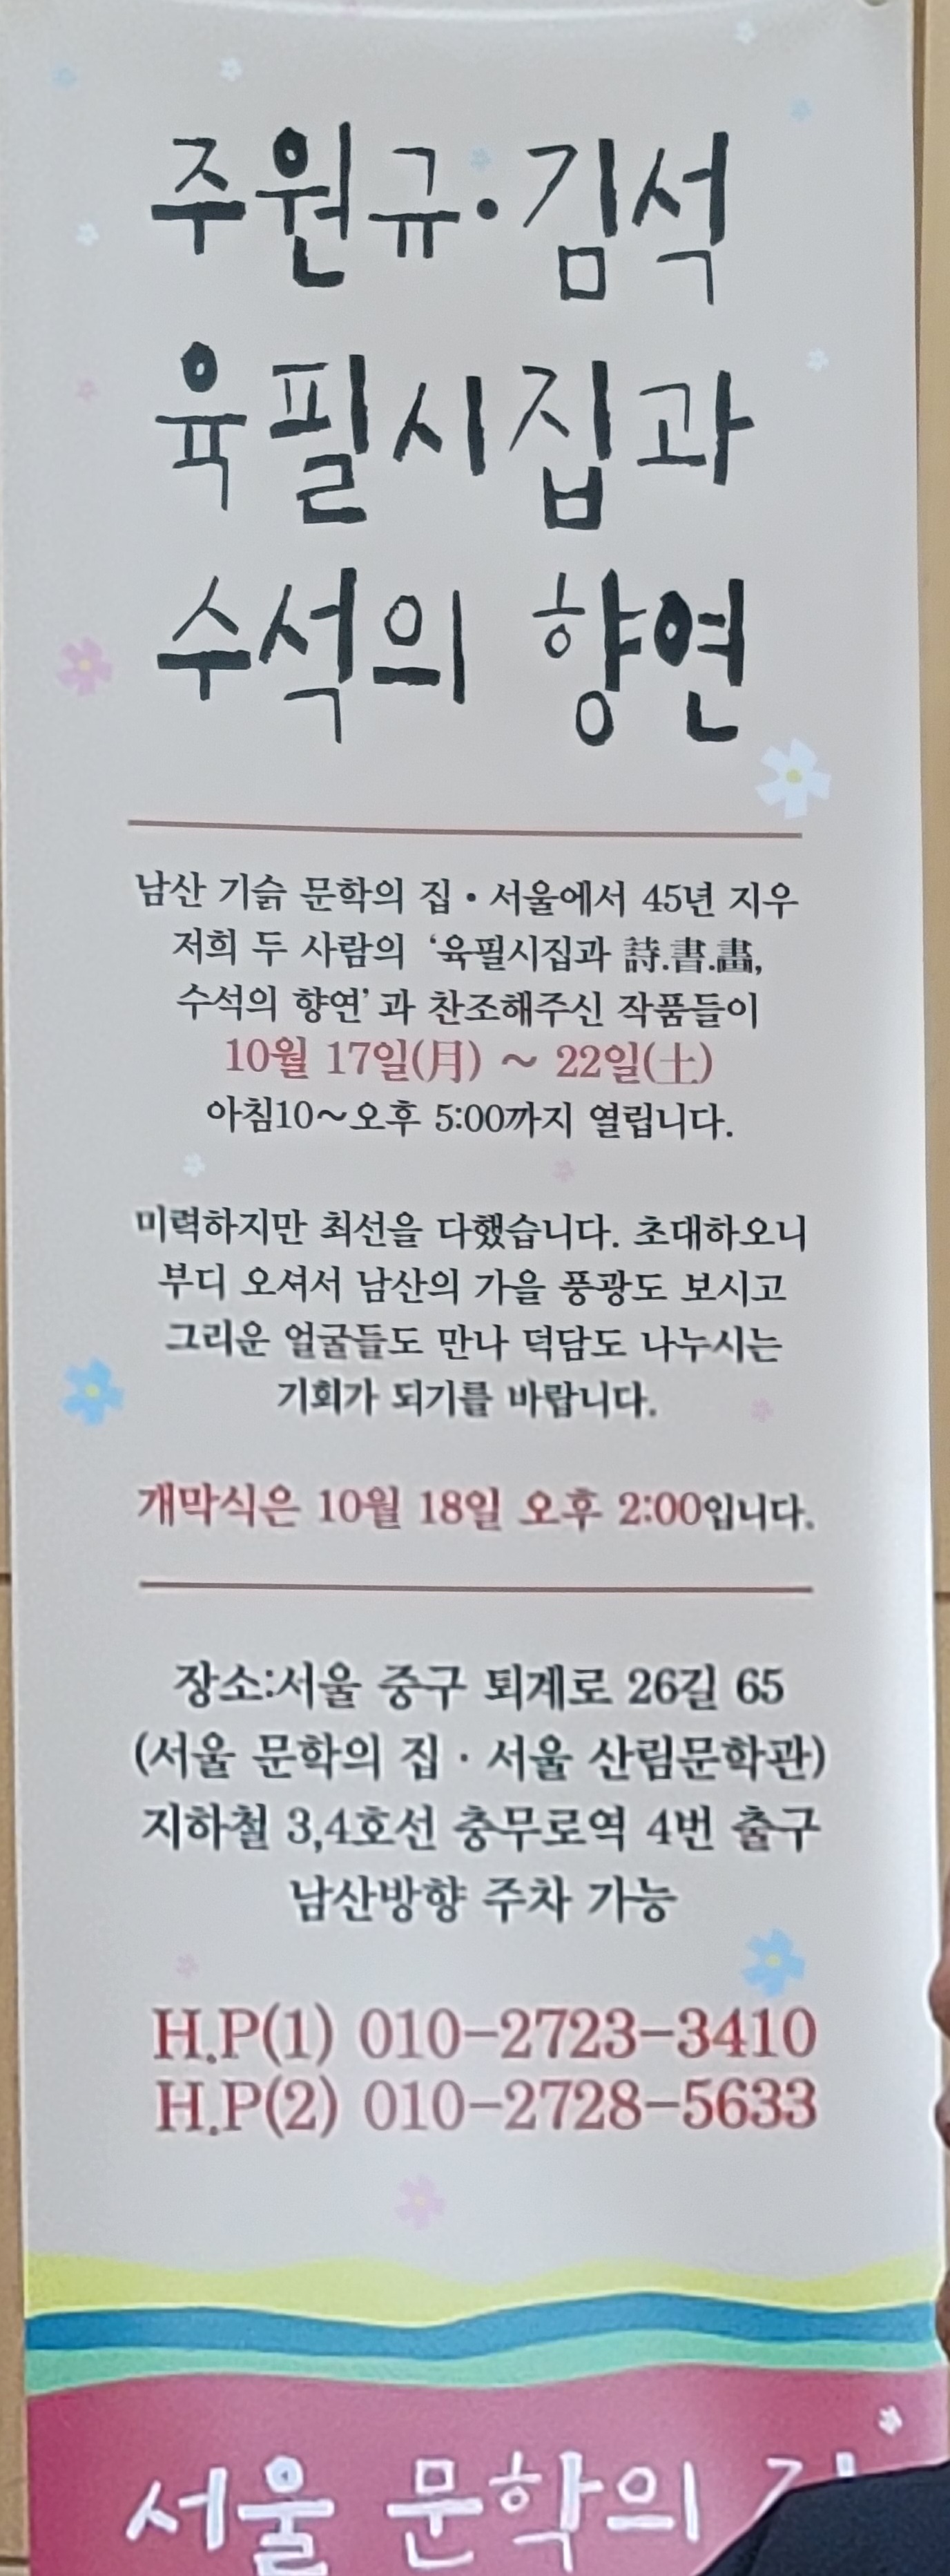 주원규·김석
육필시집과
수석의 향연
남산 기슭 문학의 집·서울에서 45년 지우
저희 두 사람의 '육필시집과 詩.書.畵,
수석의 향연'과 찬조해주신 작품들이
10월 17일(月) ~ 22일(土)
아침10~오후 5:00까지 열립니다.
미력하지만 최선을 다했습니다. 초대하오니
부디 오셔서 남산의 가을 풍광도 보시고
그리운 얼굴들도 만나 덕담도 나누시는
기회가 되기를 바랍니다.
개막식은 10월 18일 오후 2:00입니다.
장소:서울 중구 퇴계로 26길 65
(서울 문학의 집·서울 산림문학관)
지하철 3,4호선 충무로역 4번 출구
남산방향 주차 가능
H.P(1) 010-2723-3410
H.P(2) 010-2728-5633
서울 문학의